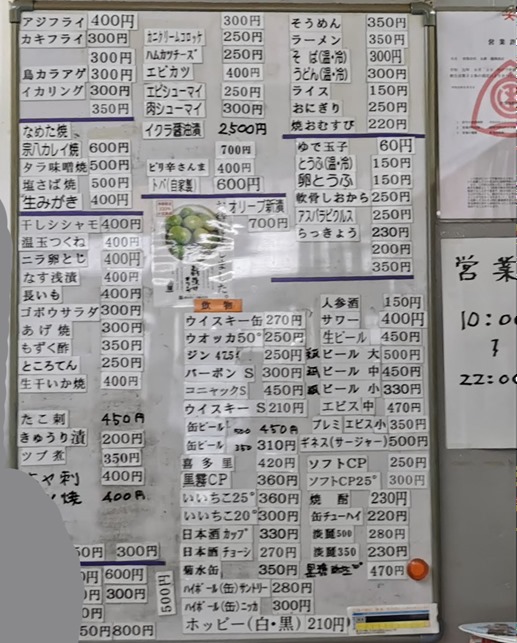 アジフライ 400円
カキフライ 300円
300円
鳥カラアゲ 300円
イカリング 300円
350円
なめた焼
宗八カレイ焼 600円
タラ味噌焼 500円
塩さば焼 500円
生みがき 400円
干しシシャモ 400円
温玉つくね 400円
ニラ卵とじ 400円
なす浅漬 400円
長いも 400円
ゴボウサラダ 300円
あげ焼 300円
もずく酢 350円
ところてん 250円
生干いか焼 400円
たこ刺 450円
きゅうり漬 200円
ツブ煮 350円
刺 400円
焼 400円
50円 300円
600円
300円
50円 800円
500円
300円
カニクリームコロッケ 250円
ハムカツチーズ 250円
エビカツ 400円
エビシューマイ 250円
肉シューマイ 300円
イクラ醤油漬 2,500円
700円
ピリ辛さんま 400円
トバ(自家製) 600円
オリーブ新漬 700円
飲物
ウイスキー缶 270円
ウオッカ50° 250円
ジン 47.5° 250円
バーボン S 300円
コニャックS 450円
ウイスキー S 210円
缶ビール 500 450円
缶ビール 350 310円
喜多里 420円
黒霧CP 360円
いいちこ25° 360円
いいちこ20° 300円
日本酒カップ 330円
日本酒チョーシ 270円
菊水缶 350円
ハイボール(缶)サントリー 280円
ハイボール(缶)ニッカ 300円
ホッピー(白・黒) 210円
そうめん 350円
ラーメン 350円
そば(温・冷) 300円
うどん(温・冷) 300円
ライス 150円
おにぎり 250円
焼おむすび 220円
ゆで玉子 60円
とうふ(温・冷) 150円
卵とうふ 150円
軟骨しおから 250円
アスパラピクルス 250円
らっきょう 230円
200円
350円
人参酒 150円
サワー 400円
生ビール 450円
ビール 大 500円
ビール 中 450円
ビール 小 330円
エビス中 470円
プレミエビス小 350円
ギネス(サージャー) 500円
ソフトCP 250円
ソフトCP25° 300円
焼酎 230円
缶チューハイ 220円
淡麗500 280円
淡麗350 230円
470円
営業
10:00
〜
22:00